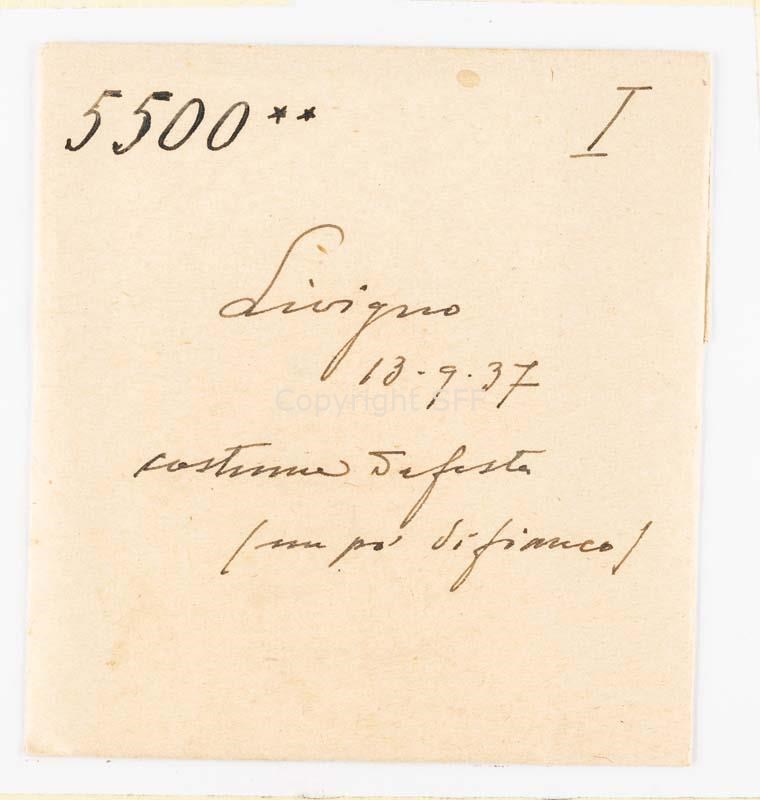 5500** I
Livigno
13-9-37
Copyright SFF
costume di festa
(un po' di fianco)